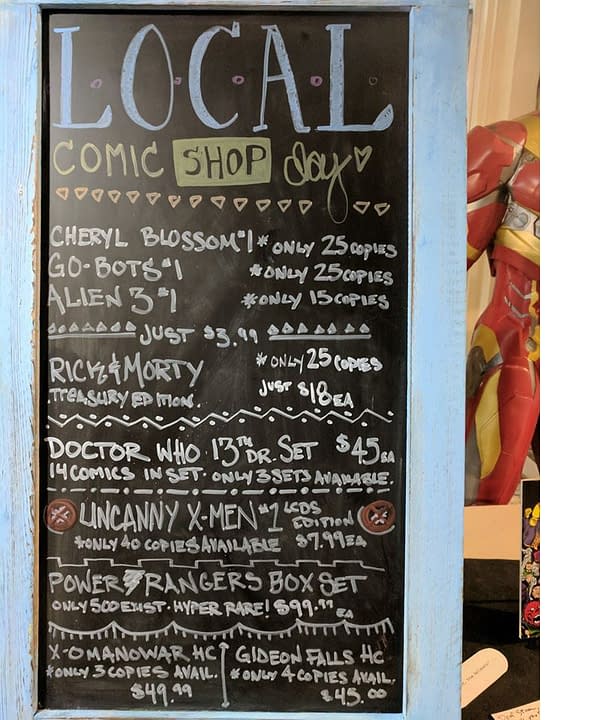 LOCAL
COMIC SHOP day
CHERYL BLOSSOM #1 * ONLY 25 COPIES
GO-BOTS #1 * ONLY 25 COPIES
ALIEN 3 #1 * ONLY 15 COPIES
JUST $3.99
RICK & MORTY * ONLY 25 COPIES
TREASURY EDITION. JUST $18 EA
DOCTOR WHO 13TH DR. SET $45 EA
14 COMICS IN SET. ONLY 3 SETS AVAILABLE.
UNCANNY X-MEN #1 LCDS EDITION
*ONLY 40 COPIES AVAILABLE $7.99 EA
POWER RANGERS BOX SET
ONLY 500 EXIST. HYPER RARE! $99.99 EA
X-O MANOWAR HC
*ONLY 3 COPIES AVAIL.
$49.99
GIDEON FALLS HC
*ONLY 4 COPIES AVAIL.
$45.00